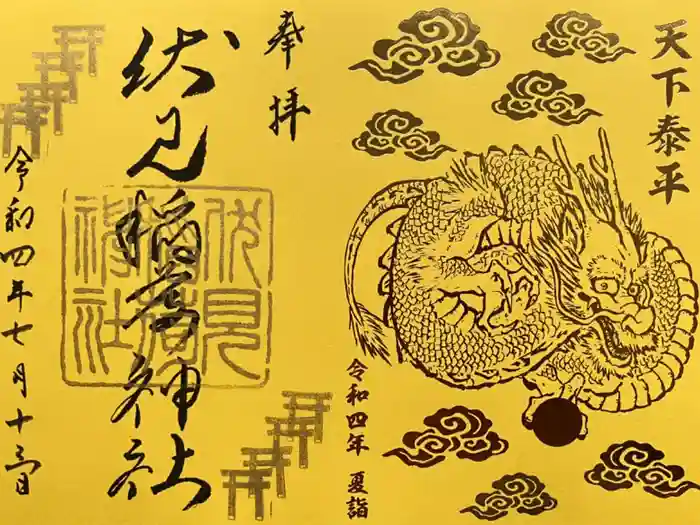 天下泰平
令和四年 夏詣
奉拝
伏見稲荷神社
伏見稲荷神社
令和四年七月十三日